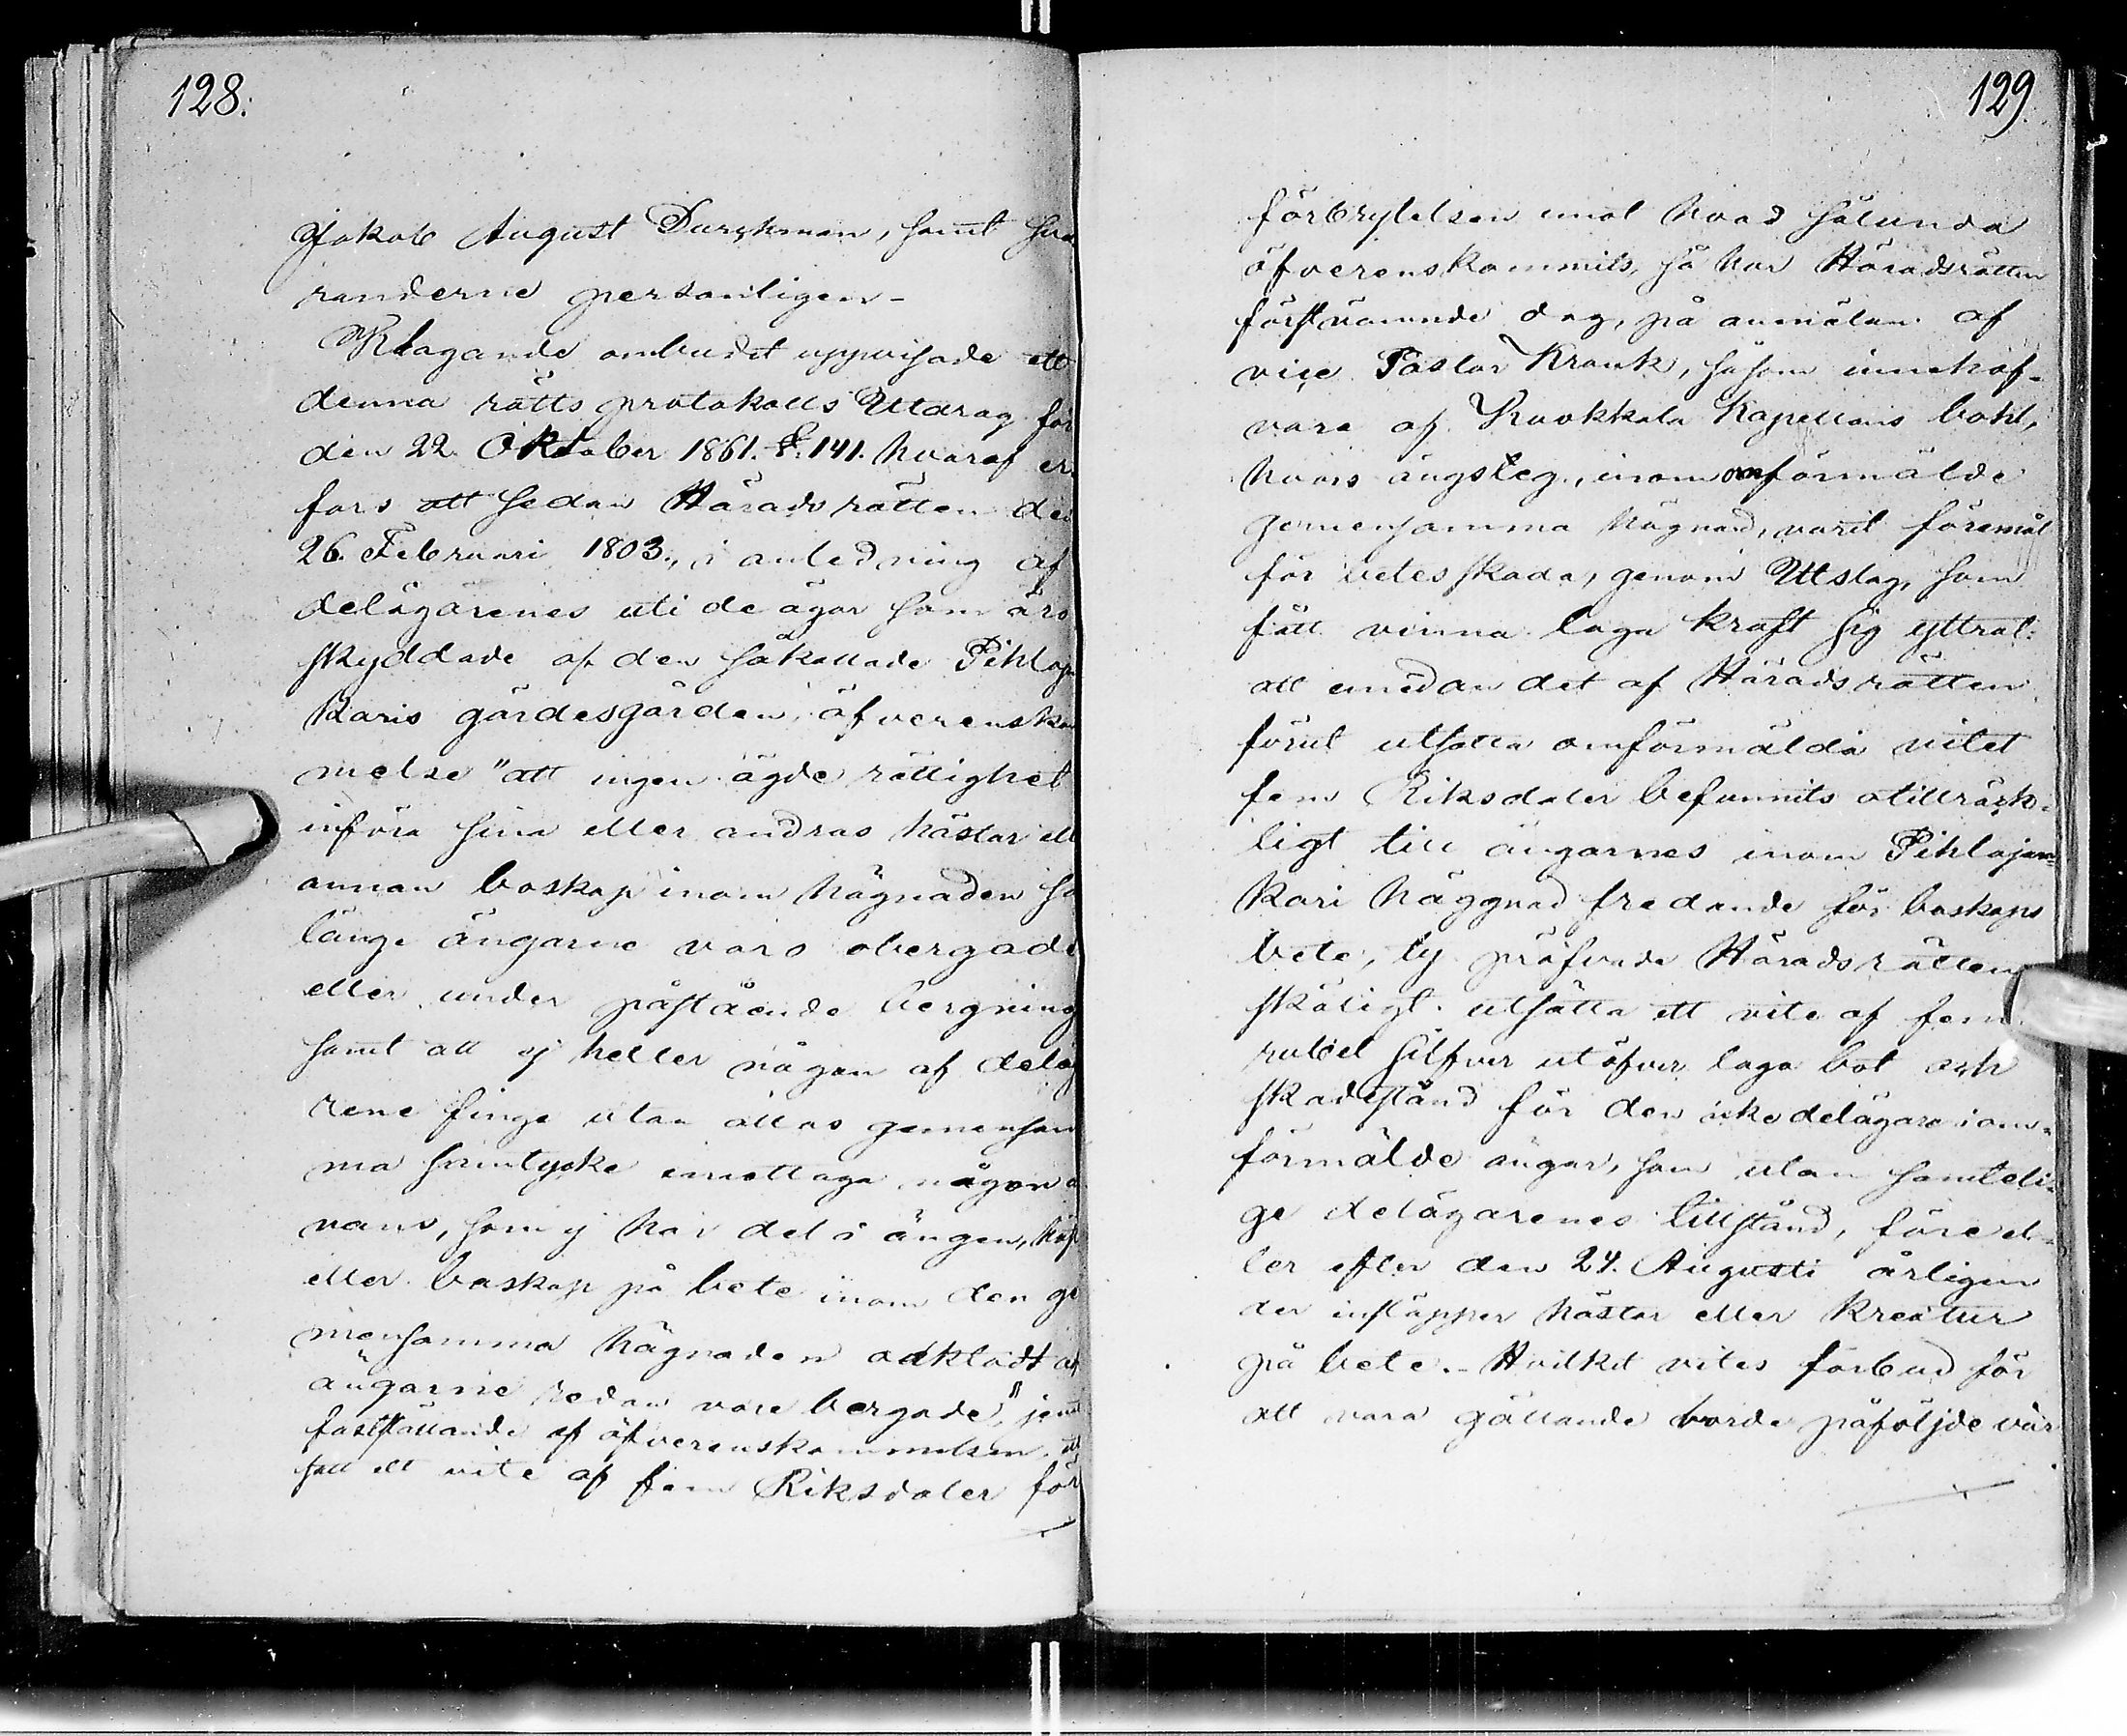 128.
Jakob August Durchman, samt sva
randerne personligen -
Klagande ombudet uppvisade ett
denna rätts protokolls Utdrag för
den 22. Oktober 1861. §. 141. hvaraf er
fors att sedan Häradsrätten den
26. Februari 1803., i anledning af
delägarenes uti de ägor som äro
skyddade af den såkallade Pihlaja
Karis gärdesgården, öfverenskom
melse "att ingen ägde rättighet
införa sina eller andras hästar ell
annan boskap inom hägnaden så
länge ängarne voro obergade
eller under påstående bergning
samt att ej heller någon af deläg
rene finge utan allas gemensam
ma samtycke emottaga någon a
nans, som ej har del i ängen, häst
eller boskap på bete inom den ge
mensamma hägnaden oaktadt at
ängarne redan vore bergade", jemt
fastställande af öfverenskommelsen, ut
satt ett vite af fem Riksdaler för
129
förbrytelsen emot hvad sålunda
öfverenskommits, så har Häradsrätten
förstnämnde dag, på anmälan af
vice Pastor Krank, såsom innehaf-
vare af Ruokkala Kapellans bohl,
hvars ängsteg, inom omförmälde
gemensamma hägnad, varit föremål
för betesskada, genom Utslag, som
fått vinna laga kraft sig yttrat:
att emedan det af Häradsrätten
förut utsatta omförmälda vitet
fem Riksdaler befunnits otillräck-
ligt till ängarnes inom Pihlajan-
Kari häggnad fredande för boskaps
bete, ty pröfvade Häradsrätten
skäligt utsätta ett vite af fem
rubel silfver utöfver laga bot och
skadestånd för den icke delägare i om-
förmälde ängar, som utan samteli-
ge delägarenes tillstånd, före el-
ler efter den 24. Augusti årligen
der insläpper hästar eller kreatur
på bete. - Hvilket vites förbud för
att vara gällande borde påföljde vår